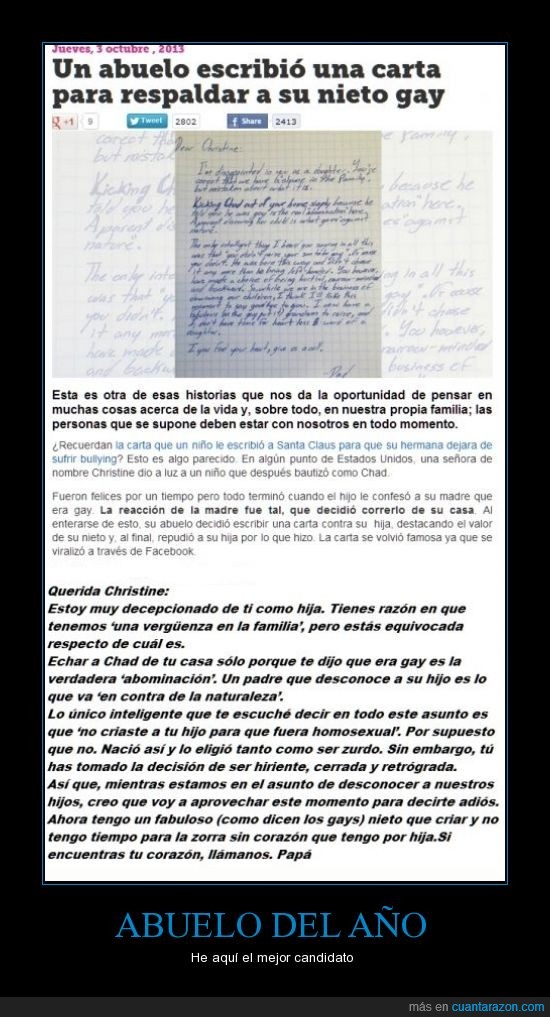 Jueves, 3 octubre , 2013
Un abuelo escribió una carta
para respaldar a su nieto gay
+1 9 Tweet 2802 Share 2413
Dear Christine:
I'm disappointed in you as a daughter. You're
correct that we have "a shame in the family",
but mistaken about what it is.
Kicking Chad out of your home simply because he
told you he was gay is the real "abomination" here.
A parent disowning her child is what goes "against
nature".
The only intelligent thing I heard you saying in all this
was that "you didn't raise your son to be gay". Of course
you didn't. He was born this way and didn't choose
it any more than he being left-handed. You however,
have made a choice of being hurtful, narrow-minded
and backward. So, while we are in the business of
disowning our children, I think I'll take this
moment to say goodbye to you. I now have a
fabulous (as the gay put it) grandson to raise, and
I don't have time for heart-less B-word of a
daughter.
If you find your heart, give us a call.
Dad
Esta es otra de esas historias que nos da la oportunidad de pensar en
muchas cosas acerca de la vida y, sobre todo, en nuestra propia familia; las
personas que se supone deben estar con nosotros en todo momento.
¿Recuerdan la carta que un niño le escribió a Santa Claus para que su hermana dejara de
sufrir bullying? Esto es algo parecido. En algún punto de Estados Unidos, una señora de
nombre Christine dio a luz a un niño que después bautizó como Chad.
Fueron felices por un tiempo pero todo terminó cuando el hijo le confesó a su madre que
era gay. La reacción de la madre fue tal, que decidió correrlo de su casa. Al
enterarse de esto, su abuelo decidió escribir una carta contra su hija, destacando el valor
de su nieto y, al final, repudió a su hija por lo que hizo. La carta se volvió famosa ya que se
viralizó a través de Facebook.
Querida Christine:
Estoy muy decepcionado de ti como hija. Tienes razón en que
tenemos ‘una vergüenza en la familia’, pero estás equivocada
respecto de cuál es.
Echar a Chad de tu casa sólo porque te dijo que era gay es la
verdadera ‘abominación’. Un padre que desconoce a su hijo es lo
que va ‘en contra de la naturaleza’.
Lo único inteligente que te escuché decir en todo este asunto es
que ‘no criaste a tu hijo para que fuera homosexual’. Por supuesto
que no. Nació así y lo eligió tanto como ser zurdo. Sin embargo, tú
has tomado la decisión de ser hiriente, cerrada y retrógrada.
Así que, mientras estamos en el asunto de desconocer a nuestros
hijos, creo que voy a aprovechar este momento para decirte adiós.
Ahora tengo un fabuloso (como dicen los gays) nieto que criar y no
tengo tiempo para la zorra sin corazón que tengo por hija.Si
encuentras tu corazón, llámanos. Papá
ABUELO DEL AÑO
He aquí el mejor candidato
más en cuantarazon.com